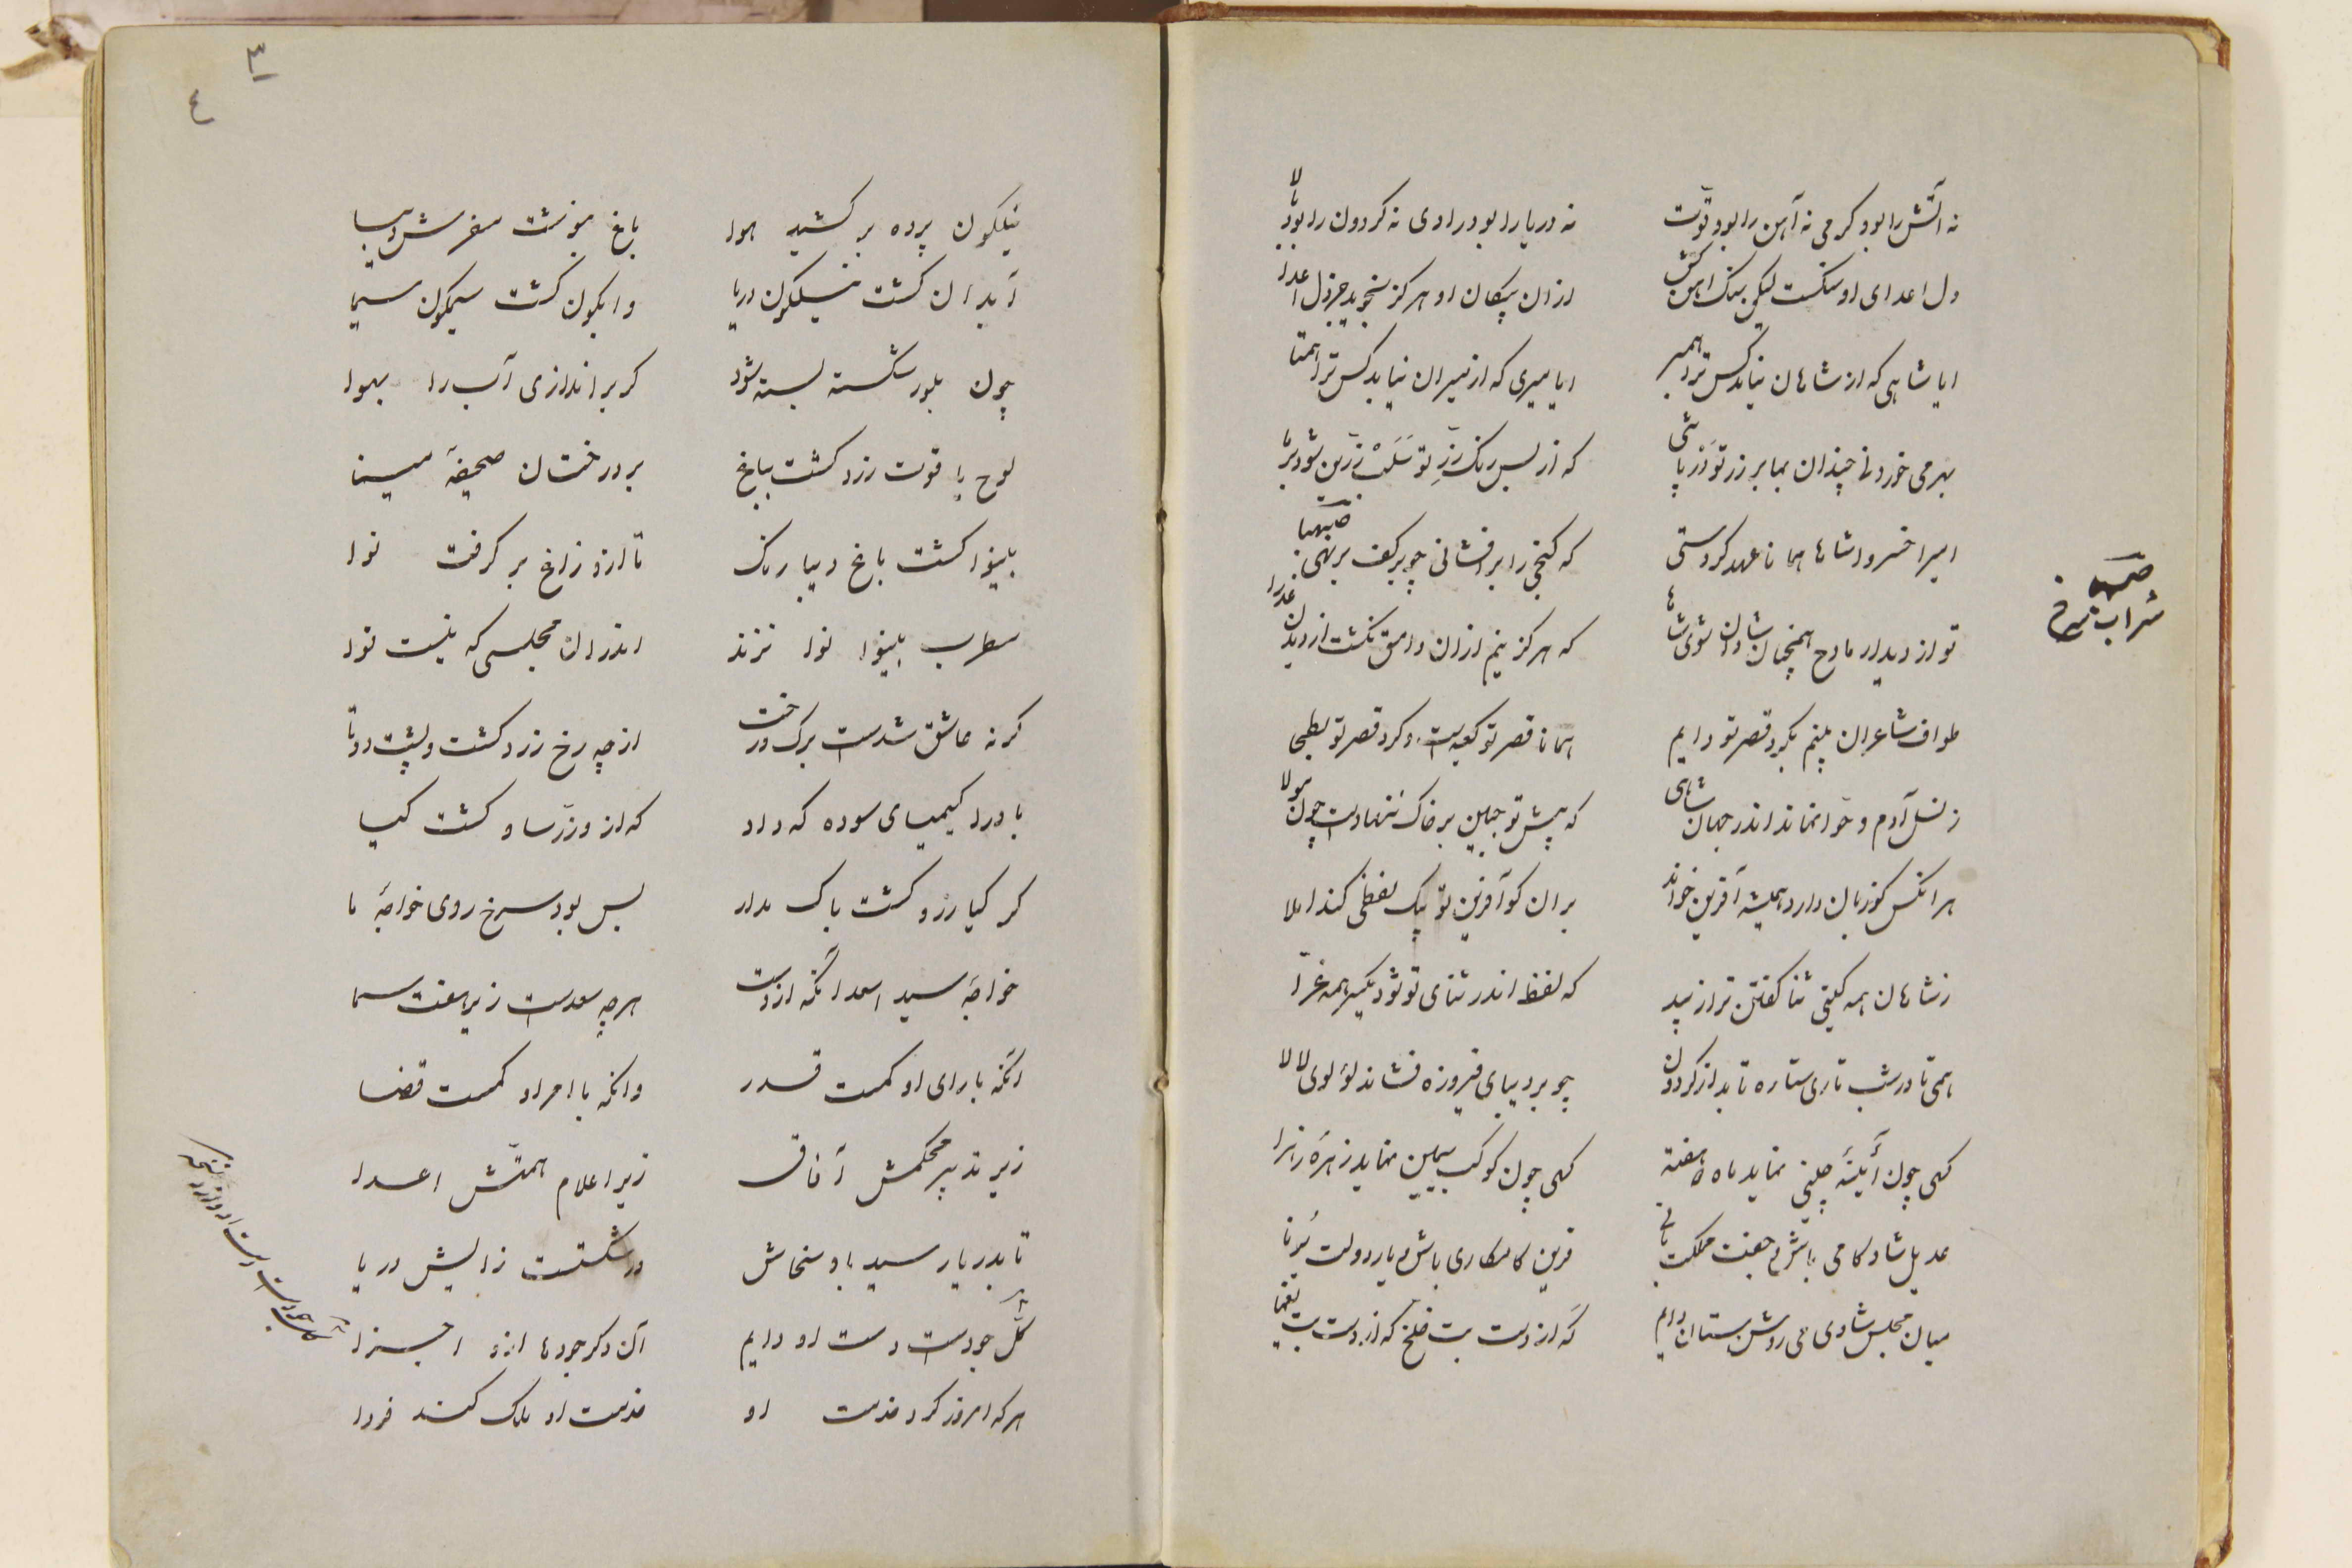 نه آتش را بود گرمی نه آهن را بود قوّت نه دریا را بود رادی نه کردون را بود بالا
دل اعدای او سنکست لیکن سنک آهن کش ازان پیکان او هرکز نجوید جز دل اعدا
ایا شاهی که از شاهان نیاید کس ترا همبر ایا میری که از میران نیاید کس ترا همتا
بهر می خوردنی چندان بما بر زر تو در پاشی که از بس رنک زرِ تو سَلَبْ زرّین شود بر ما
امیرا خسروا شاها همانا عهد کردستی که کنجی را برافشانی چو بر کف بر نهی صهبا
صهبا
شراب سرخ
تو از دیدار مادح همچنان شادان شوی شاها که هرکز نیم ازان وامق نکشت از دیدن عذرا
طواف شاعران بینم بکرد قصر تو دایم همانا قصر تو کعبه است و کرد قصر تو بطحی
ز نسل آدم و حوّا نماند اندر جهان شاهی که پیش تو جبین بر خاک ننهادست چون مولا
هر انکس کو زبان دارد همیشه آفرین خواند بران کو آفرین تو بیک لفظی کند املا
ز شاهان همه کیتی ثنا کفتن ترا زیبد که لفظ اندر ثنای تو شود یکسر همه غرّا
همی تا در شب تاری ستاره تابد از کردون چو بر دیبای فیروزه فشاند لؤلوی لالا
کهی چون آئینهٔ چینی نماید ماه دو هفته کهی چون کوکب سیمین نماید زهرهٔ زهرا
عدیل شادکامی باش و جفت مملکت باقی قرین کامکاری باش و یار دولت بُرنا
میان مجلس شادی می روشن ستان دایم که از دست بت خلّخ که از دست بت یغما
۳
٤
نیلکون پرده بر کشید هوا باغ بنوشت مفرش دیبا
آبدان کشت نیلکون دریا و آسمان کشت سیمکون سیما
چون بلور شکسته بسته شود کر براندازی آب را بهوا
لوح یاقوت زرد کشت بباغ بر درختان صحیفهٔ مینا
بینوا کشت باغ دیبا رنک تا ازو زاغ بر کرفت نوا
مطرب بینوا نوا نزند اندران مجلسی که نیست نوا
کر نه عاشق شدست برک درخت از چه رخ زرد کشت و پشت دوتا
باد را کیمیای سوده که داد که ازو زرّ ساو کشت کیا
کر کیا زرد کشت باک مدار بس بود سرخ روی خواجهٔ ما
خواجهٔ سید اسعد آنکه ازوست هرچه سعدست زیر هفت سما
آنکه با رای او یکست قدر وانکه با امر او یکست قضا
زیر تدبیر محکمش آفاق زیر اعلام همّتش اعدا
تا بدریا رسید باد سخاش در شکست زایش دریا
کلّ جودست دست او دایم آن دکر جودها ازو اجزا
هر که امروز کرد خدمت او خدمت او ملک کند فردا